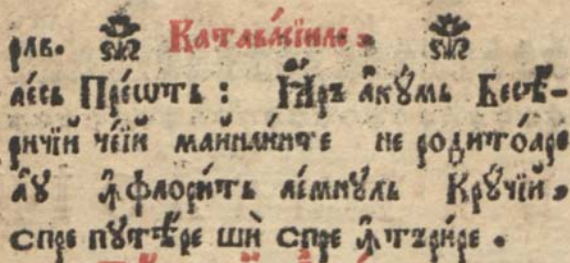 рлв. Катавасїиле.
лєсь Прєѡтъ : Ꙗ҆ръ а҆кꙋмь Бесѣ-
ричїй чє́їй май наинте не родито́аре
а҆ꙋ ꙟ҆флори́ть лє́мнꙋль Крꙋ́чїй,
спре пꙋтѣ́ре шѝ спре ꙟ҆търі́ре .